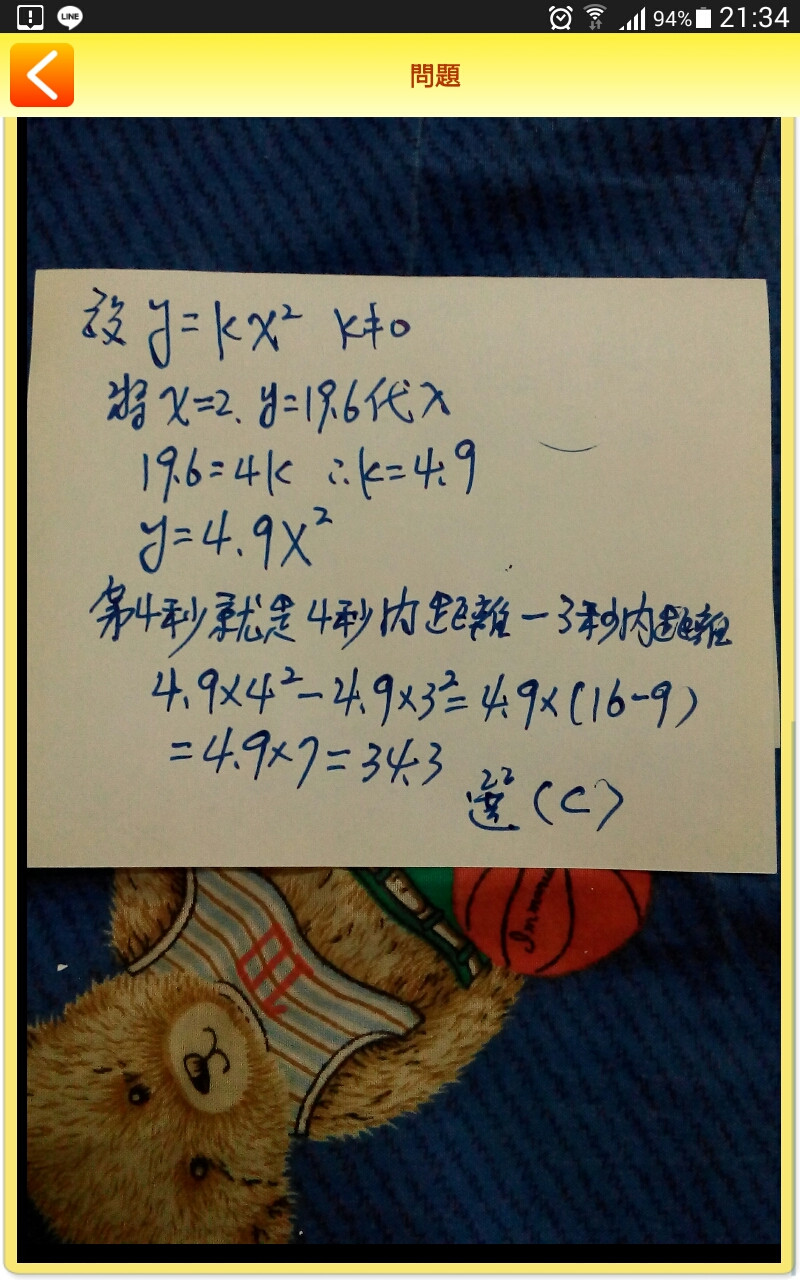 LINE
94% 21:34
問題
設 y=kx² k≠0
將 x=2、y=19.6代入
19.6=4k ∴k=4.9
y=4.9x²
第4秒就是4秒內距離-3秒內距離
4.9×4²-4.9×3²=4.9×(16-9)
=4.9×7=34.3
選(C)